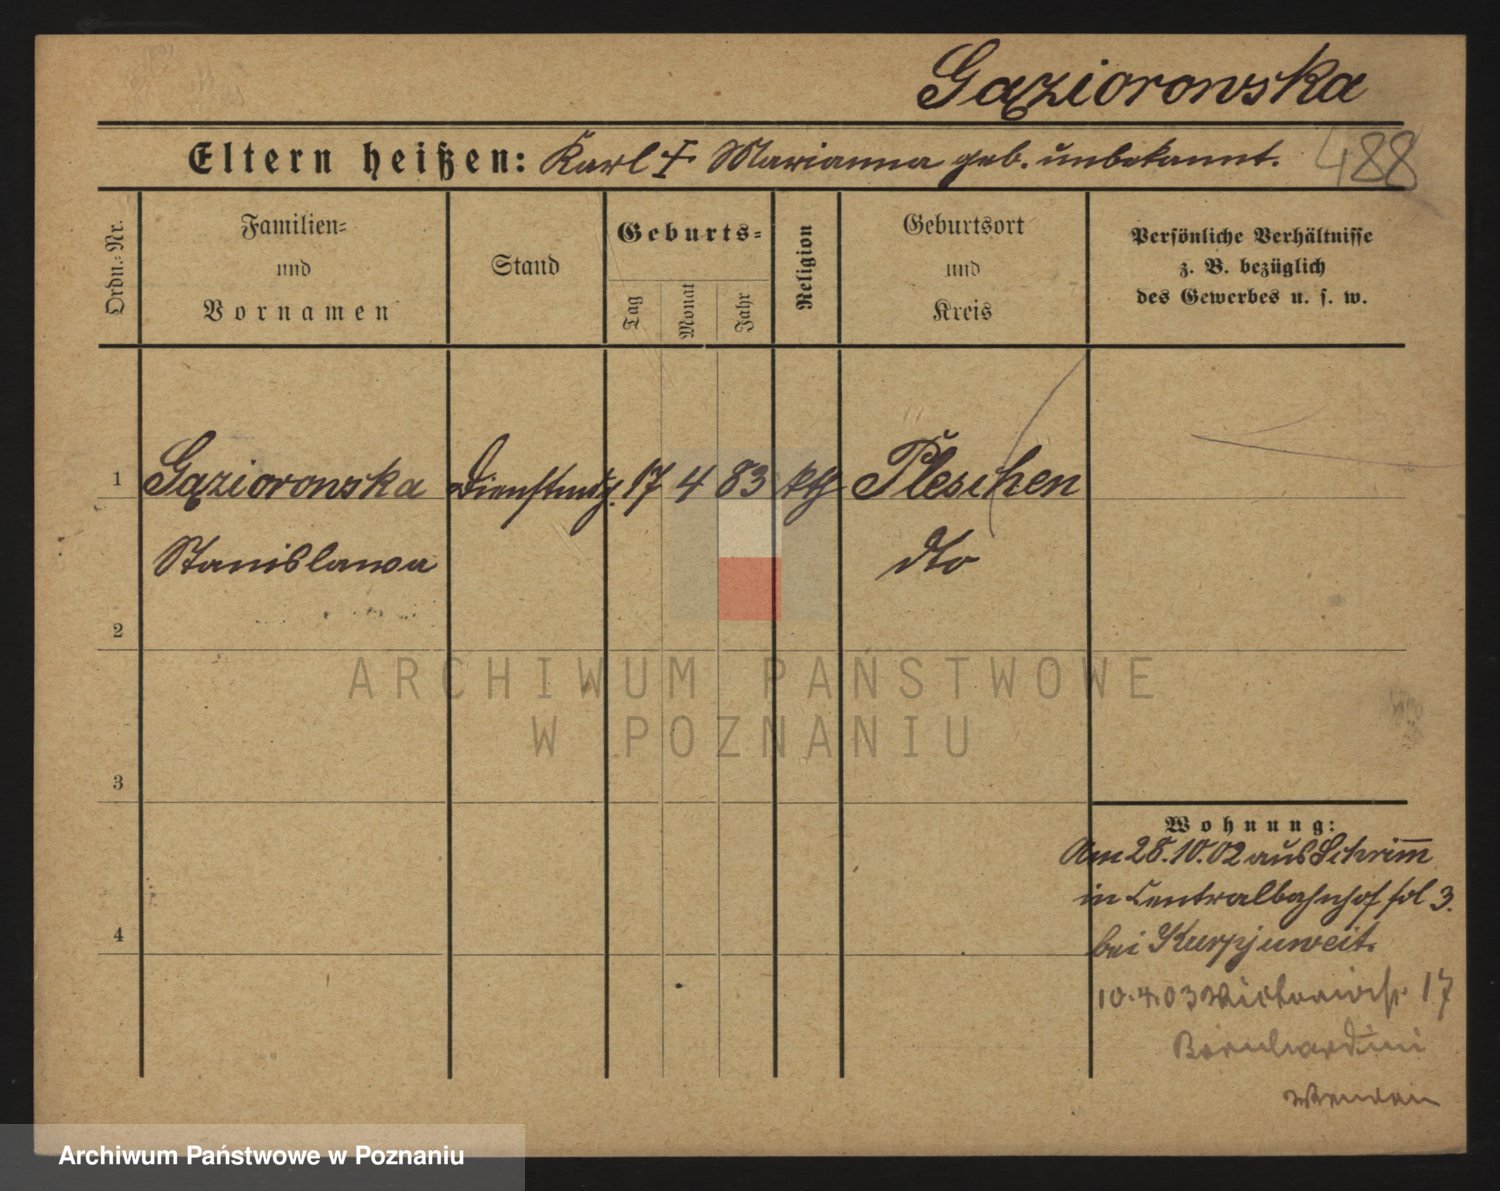 Gąziorowska
Eltern heißen: Karl † Marianna geb. unbekannt.
488
Ordn.-Nr.
Familien-
und
Vornamen
Stand
Geburts-
Tag
Monat
Jahr
Religion
Geburtsort
und
Kreis
Persönliche Verhältnisse
z. B. bezüglich
des Gewerbes u. s. w.
1 Gąziorowska Dienstmdg. 17 4 83 kth Pleschen
Stanislawa dto
2
ARCHIWUM PAŃSTWOWE
W POZNANIU
3
Wohnung:
Am 28.10.02 aus Schrimm
in Centralbahnhof fol 3.
bei Kurpjuweit.
10.4.03 Victoriastr 17
Bernhardini
4
Archiwum Państwowe w Poznaniu